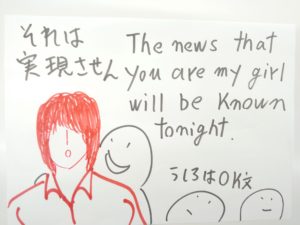 それは
実現させん
The news that
you are my girl
will be known
tonight.
うしろはOK文